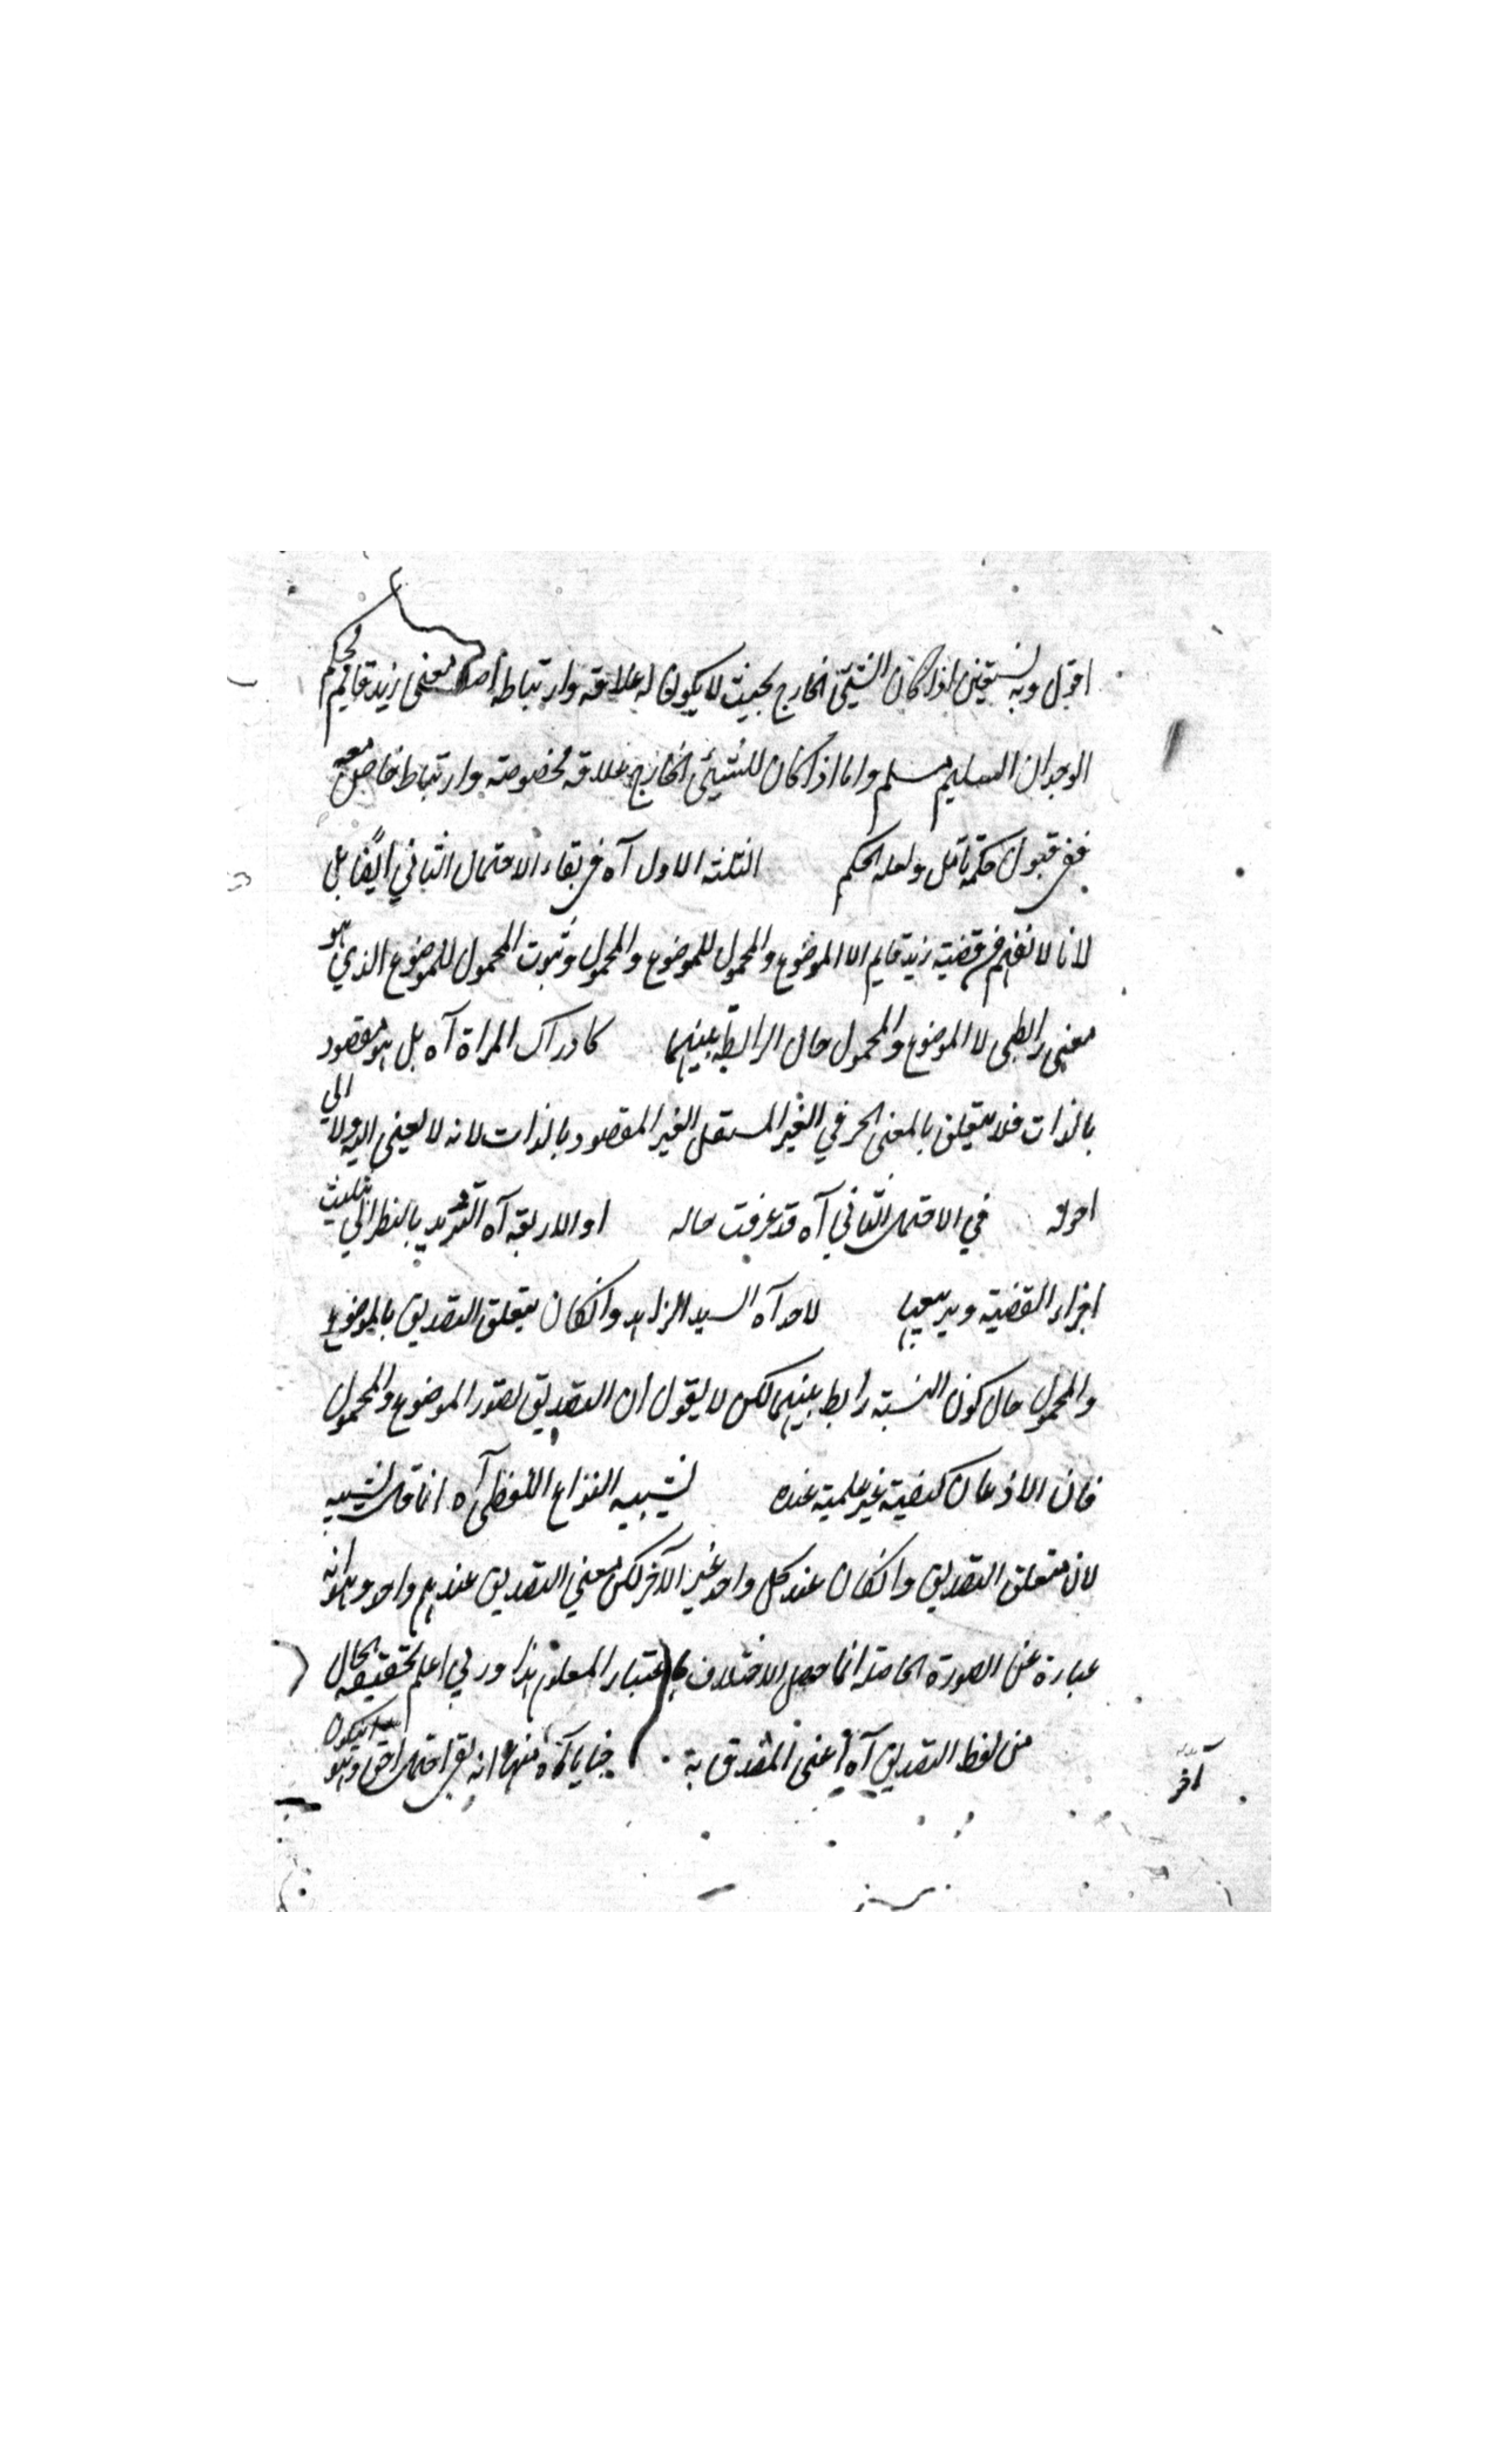 اقول وبه نستعين اذا كان الشيئ الخارج بحيث لا يكون له علاقة وارتباط اصلا بمعنى زيد قايم فحكم
الوجدان السليم مسلم واما اذا كان للشيئ الخارج علاقة مخصوصة وارتباط خاص معه
ففي قبول حكمه تامل ولعله الحكم الثلثة الاول آه في بقاء الاحتمال الثاني ايضا بل
لانا لا نفهم من قضية زيد قايم الا الموضوع والمحمول للموضوع والمحمول وثبوت المحمول للموضوع الذي هو
معنى رابطي لا الموضوع والمحمول حال الرابطة بينهما كادراك المراة آه بل هو مقصود
بالذات فلا يتعلق بالمعنى الحرفي الغير المستقل الغير المقصود بالذات لانه لا يعنى اليه ولا الى
احوله في الاحتمال الثاني آه قد عرفت حاله او الاربعة آه الترديد بالنظر الى تثليث
اجزاء القضية وتربيعها لاحد آه السيد الزاهد وانكان يتعلق التصديق بالموضوع
والمحمول حال كون النسبة رابط بينهما لكن لا يقول ان التصديق تصور الموضوع والمحمول
فان الاذعان كيفية غير علمية عنده لشبيه النزاع اللفظي آه انما قال لشبيه
لان متعلق التصديق وانكان عند كل واحد غير الآخر لكن معني التصديق عندهم واحد وهو انه
عبارة عن الصورة الحاصلة انما حصل الاختلاف باعتبار المعلوم هذا وربي اعلم بحقيقة الحال
من لفظ التصديق آه اعنى المصدق به خبايا آه منها انه بقي احتمال آخر وهو
آخر